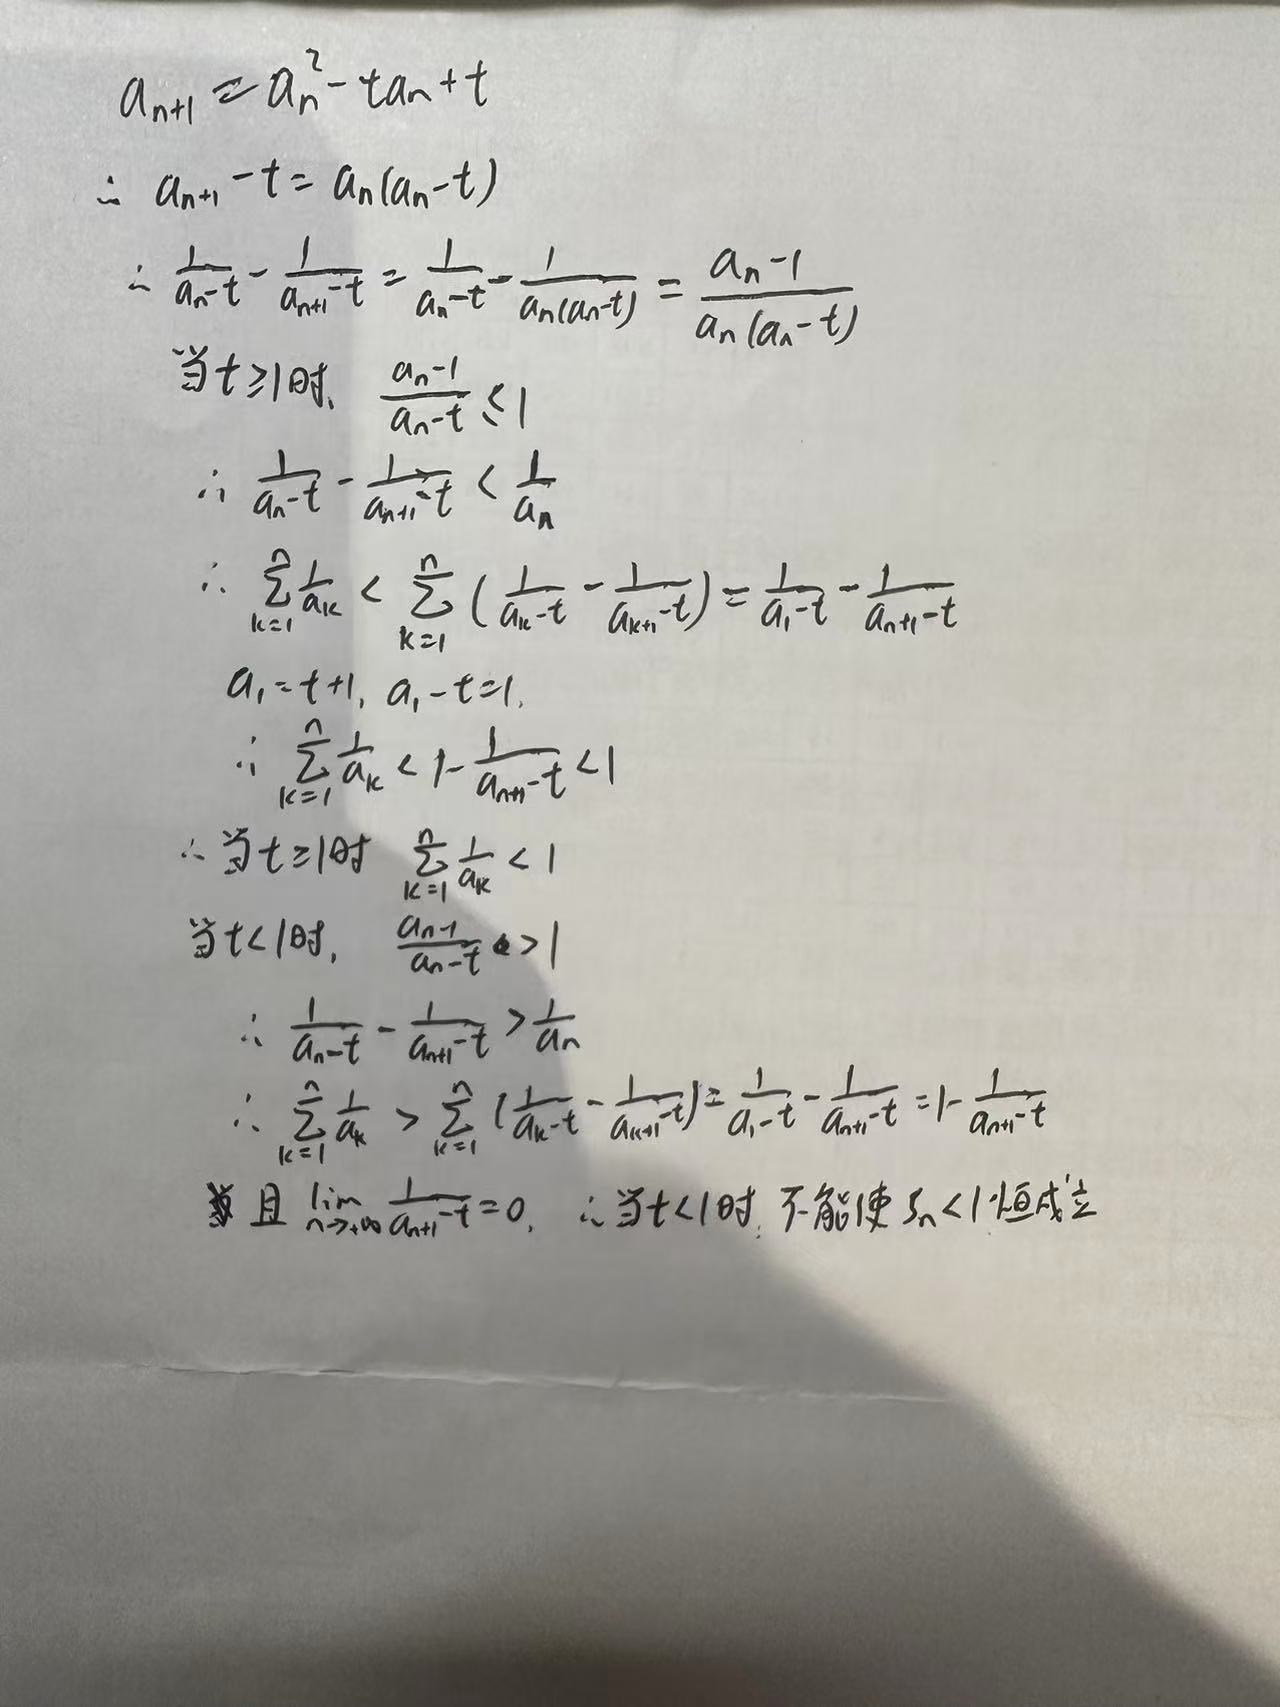 a_{n+1} = a_n^2 - ta_n + t
∴ a_{n+1} - t = a_n(a_n - t)
∴ \frac{1}{a_n - t} - \frac{1}{a_{n+1} - t} = \frac{1}{a_n - t} - \frac{1}{a_n(a_n - t)} = \frac{a_n - 1}{a_n(a_n - t)}
当t≥1时, \frac{a_n - 1}{a_n - t} ≤ 1
∴ \frac{1}{a_n - t} - \frac{1}{a_{n+1} - t} < \frac{1}{a_n}
∴ \sum_{k=1}^{n} \frac{1}{a_k} < \sum_{k=1}^{n} (\frac{1}{a_k - t} - \frac{1}{a_{k+1} - t}) = \frac{1}{a_1 - t} - \frac{1}{a_{n+1} - t}
a_1 = t+1, a_1 - t = 1,
∴ \sum_{k=1}^{n} \frac{1}{a_k} < 1 - \frac{1}{a_{n+1} - t} < 1
∴ 当t≥1时 \sum_{k=1}^{n} \frac{1}{a_k} < 1
当t<1时, \frac{a_n - 1}{a_n - t} > 1
∴ \frac{1}{a_n - t} - \frac{1}{a_{n+1} - t} > \frac{1}{a_n}
∴ \sum_{k=1}^{n} \frac{1}{a_k} > \sum_{k=1}^{n} (\frac{1}{a_k - t} - \frac{1}{a_{k+1} - t}) = \frac{1}{a_1 - t} - \frac{1}{a_{n+1} - t} = 1 - \frac{1}{a_{n+1} - t}
且 \lim_{n→+∞} \frac{1}{a_{n+1} - t} = 0, ∴当t<1时, 不能使 S_n < 1 恒成立